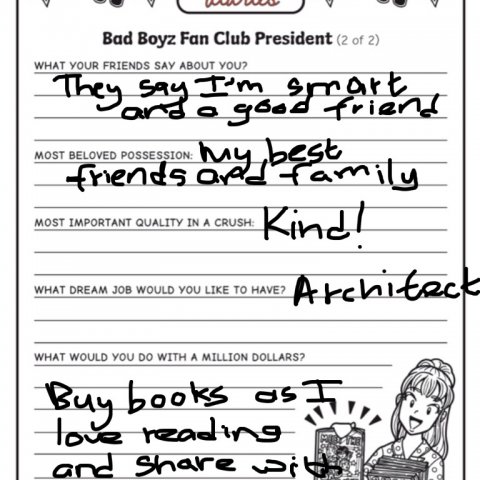 diaries
Bad Boyz Fan Club President (2 of 2)
WHAT YOUR FRIENDS SAY ABOUT YOU?
They say I'm smart
and a good friend
MOST BELOVED POSSESSION: My best
friends and family
MOST IMPORTANT QUALITY IN A CRUSH: Kind!
WHAT DREAM JOB WOULD YOU LIKE TO HAVE? Architect
WHAT WOULD YOU DO WITH A MILLION DOLLARS?
Buy books as I
love reading
and share with